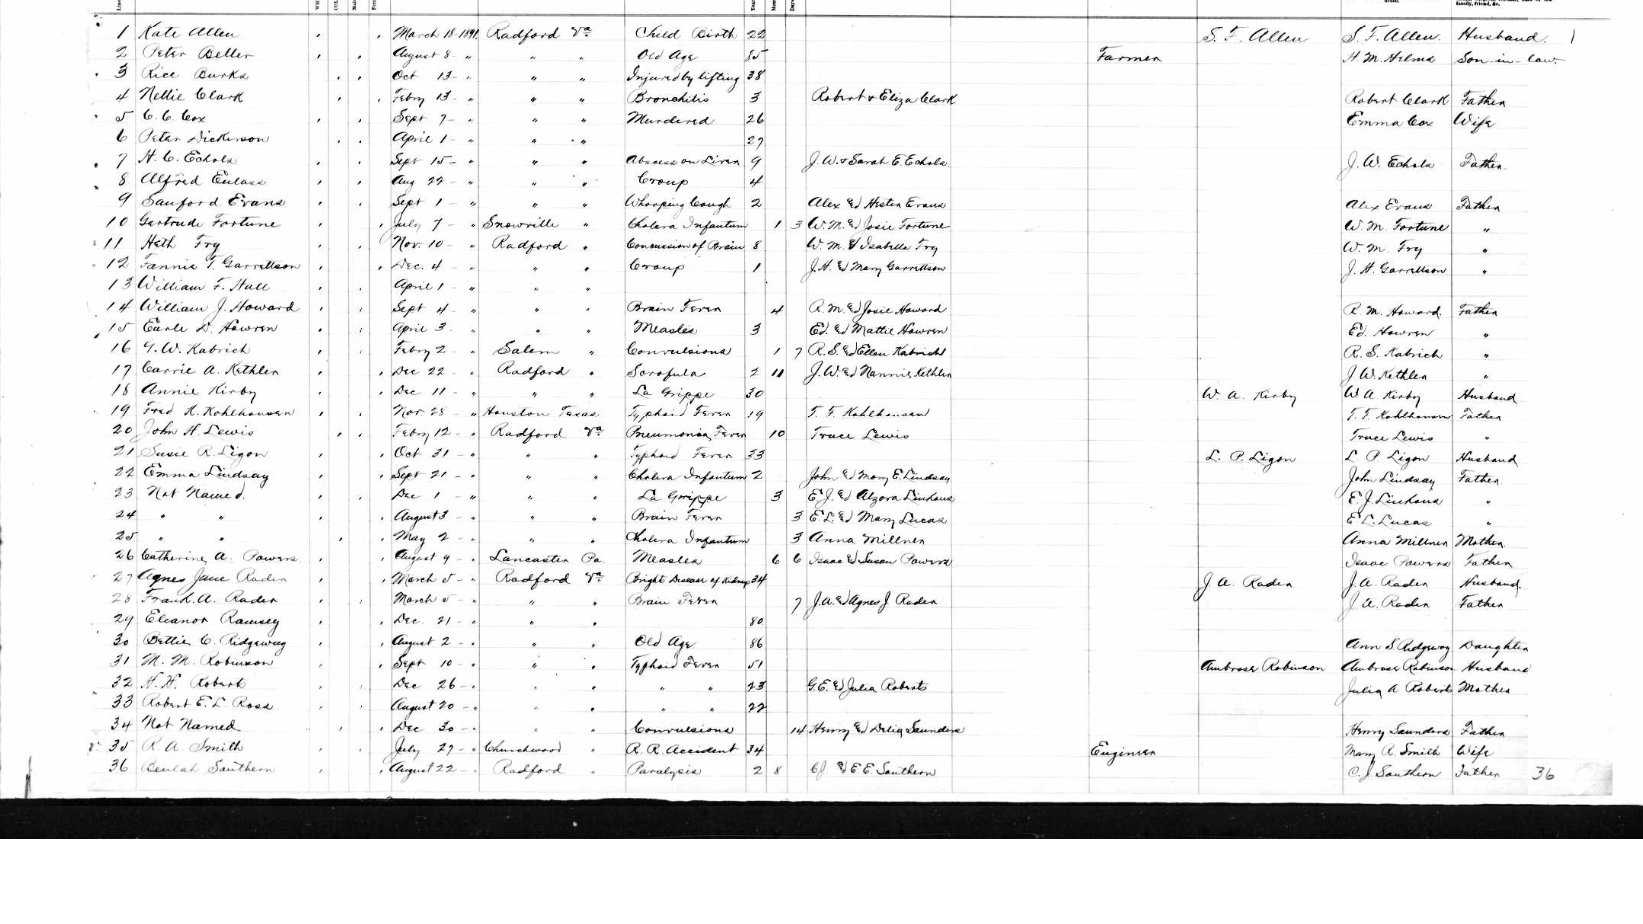 1 Kate Allen March 18-1891 Radford Va Child Birth 22 S. F. Allen S. F. Allen. Husband.
2 Peter Beller August 8- " " " Old Age 85 Farmer H. M. Helms Son-in-law
3 Rice Burks Oct 13- " " " Injured by lifting 38
4 Nettie Clark Febry 13- " " " Bronchitis 3 Robert & Eliza Clark Robert Clark Father
5 C. C. Cox Sept 7- " " " Murdered 26 Emma Cox Wife
6 Peter Dickerson April 1- " " " 27
7 H. C. Echols Sept 15- " " " Abscess on Liver 9 J. W. & Sarah E. Echols J. W. Echols Father.
8 Alfred Aug 22- " " " Croup 4
9 Sanford Evans Sept 1- " " " Whooping Cough 2 Alex & Hester Evans Alex Evans Father
10 Gertrude Fortune July 7- " Snowville " Cholera Infantum 1 3 W. M. & Josie Fortune W. M. Fortune "
11 Heth Fry Nov. 10- " Radford " Concussion of Brain 8 W. M. & Isabella Fry W. M. Fry "
12 Fannie T. Garrettson Dec. 4- " " " Croup 1 J. H. & Mary Garrettson J. H. Garrettson "
13 William F. Hall April 1- " " "
14 William J. Howard Sept 4- " " " Brain Fever 4 R. M. & Josie Howard R. M. Howard. Father
15 Earle D. Howren April 3- " " " Measles 3 Ed. & Mattie Howren Ed. Howren "
16 Kabrich Febry 2- " Salem " Convulsions 1 7 R. S. & Ellen Kabrich R. S. Kabrich "
17 Carrie A. Kethlen Dec 22- " Radford " Scrofula 2 11 J. W. & Nannie Kethlen J. W. Kethlen "
18 Annie Kirby Dec 11- " " " La Grippe 30 W. A. Kirby W. A. Kirby Husband
19 Fred K. Kohlhausen Nov. 28- " Houston Texas Typhoid Fever 19 F. F. Kohlhausen F. F. Kohlhausen Father
20 John H. Lewis Febry 12- " Radford Va Pneumonia Fever 10 Truce Lewis Truce Lewis "
21 Susie R. Ligon Oct 31- " " " Typhoid Fever 33 L. P. Ligon L. P. Ligon Husband
22 Emma Lindsay Sept 21- " " " Cholera Infantum 2 John & Mary E. Lindsay John Lindsay Father
23 Not Named. Dec 1- " " " La Grippe 3 E. J. & Alzora Linkous E. J. Linkous "
24 " " August 3- " " " Brain Fever 3 E. L. & Mary Lucas E. L. Lucas "
25 " " May 2- " " " Cholera Infantum 3 Anna Millner Anna Millner Mother
26 Catherine A. Powers August 9- " Lancaster Pa. Measles 6 6 Isaac & Susan Powers Isaac Powers Father
27 Agnes Jane Rader March 5- " Radford Va Bright Disease of Kidneys 34 J. A. Rader J. A. Rader Husband
28 Frank A. Rader March 5- " " " Brain Fever 7 J. A. & Agnes J. Rader J. A. Rader Father
29 Eleanor Ramsey Dec. 21- " " " 80
30 Bettie C. Ridgeway August 2- " " " Old Age 86 Ann S Ridgway Daughter
31 M. M. Robinson Sept 10- " " " Typhoid Fever 51 Ambrose Robinson Ambrose Robinson Husband
32 H. H. Robert Dec 26- " " " " " 23 G. E. & Julia Roberts Julia A Robert Mother
33 Robert E. L. Ross August 20- " " " " " 22
34 Not Named Dec 30- " " " Convulsions 14 Henry & Delia Saunders Henry Saunders Father
35 R. A. Smith July 29- " Churchwood " R. R. Accident 34 Engineer Mary R. Smith Wife
36 Beulah Southern August 22- " Radford " Paralysis 2 8 C. J. & E. E. Southern C. J. Southern Father 36